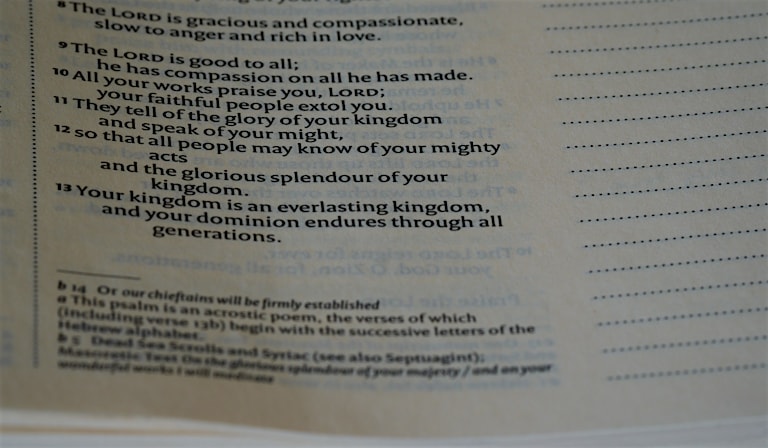 8 The LORD is gracious and compassionate,
slow to anger and rich in love.
9 The LORD is good to all;
he has compassion on all he has made.
10 All your works praise you, LORD;
your faithful people extol you.
11 They tell of the glory of your kingdom
and speak of your might,
12 so that all people may know of your mighty
acts
and the glorious splendour of your
kingdom.
13 Your kingdom is an everlasting kingdom,
and your dominion endures through all
generations.
b 14 Or our chieftains will be firmly established
a This psalm is an acrostic poem, the verses of which
(including verse 13b) begin with the successive letters of the
Hebrew alphabet.
b 5 Dead Sea Scrolls and Syriac (see also Septuagint);
Masoretic Text On the glorious splendour of your majesty / and on your
wonderful works I will meditate